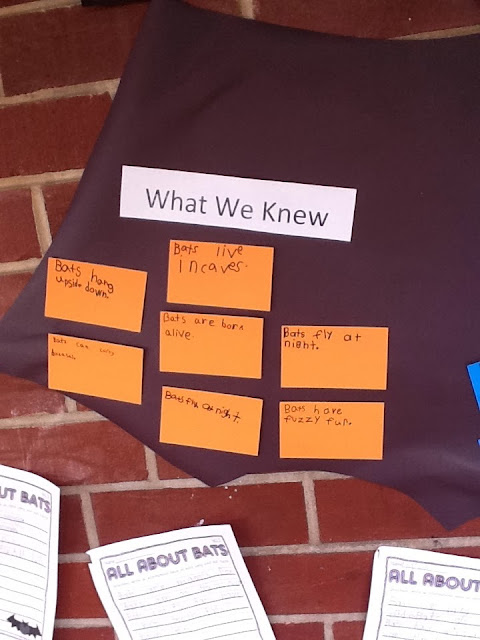 What We Knew
Bats live
in caves.
Bats hang
upside down.
Bats are born
alive.
Bats fly at
night.
Bats can
Bats fly at night
Bats have
fuzzy fur.
OUT BATS
ALL ABOUT BATS
ALL ABOUT